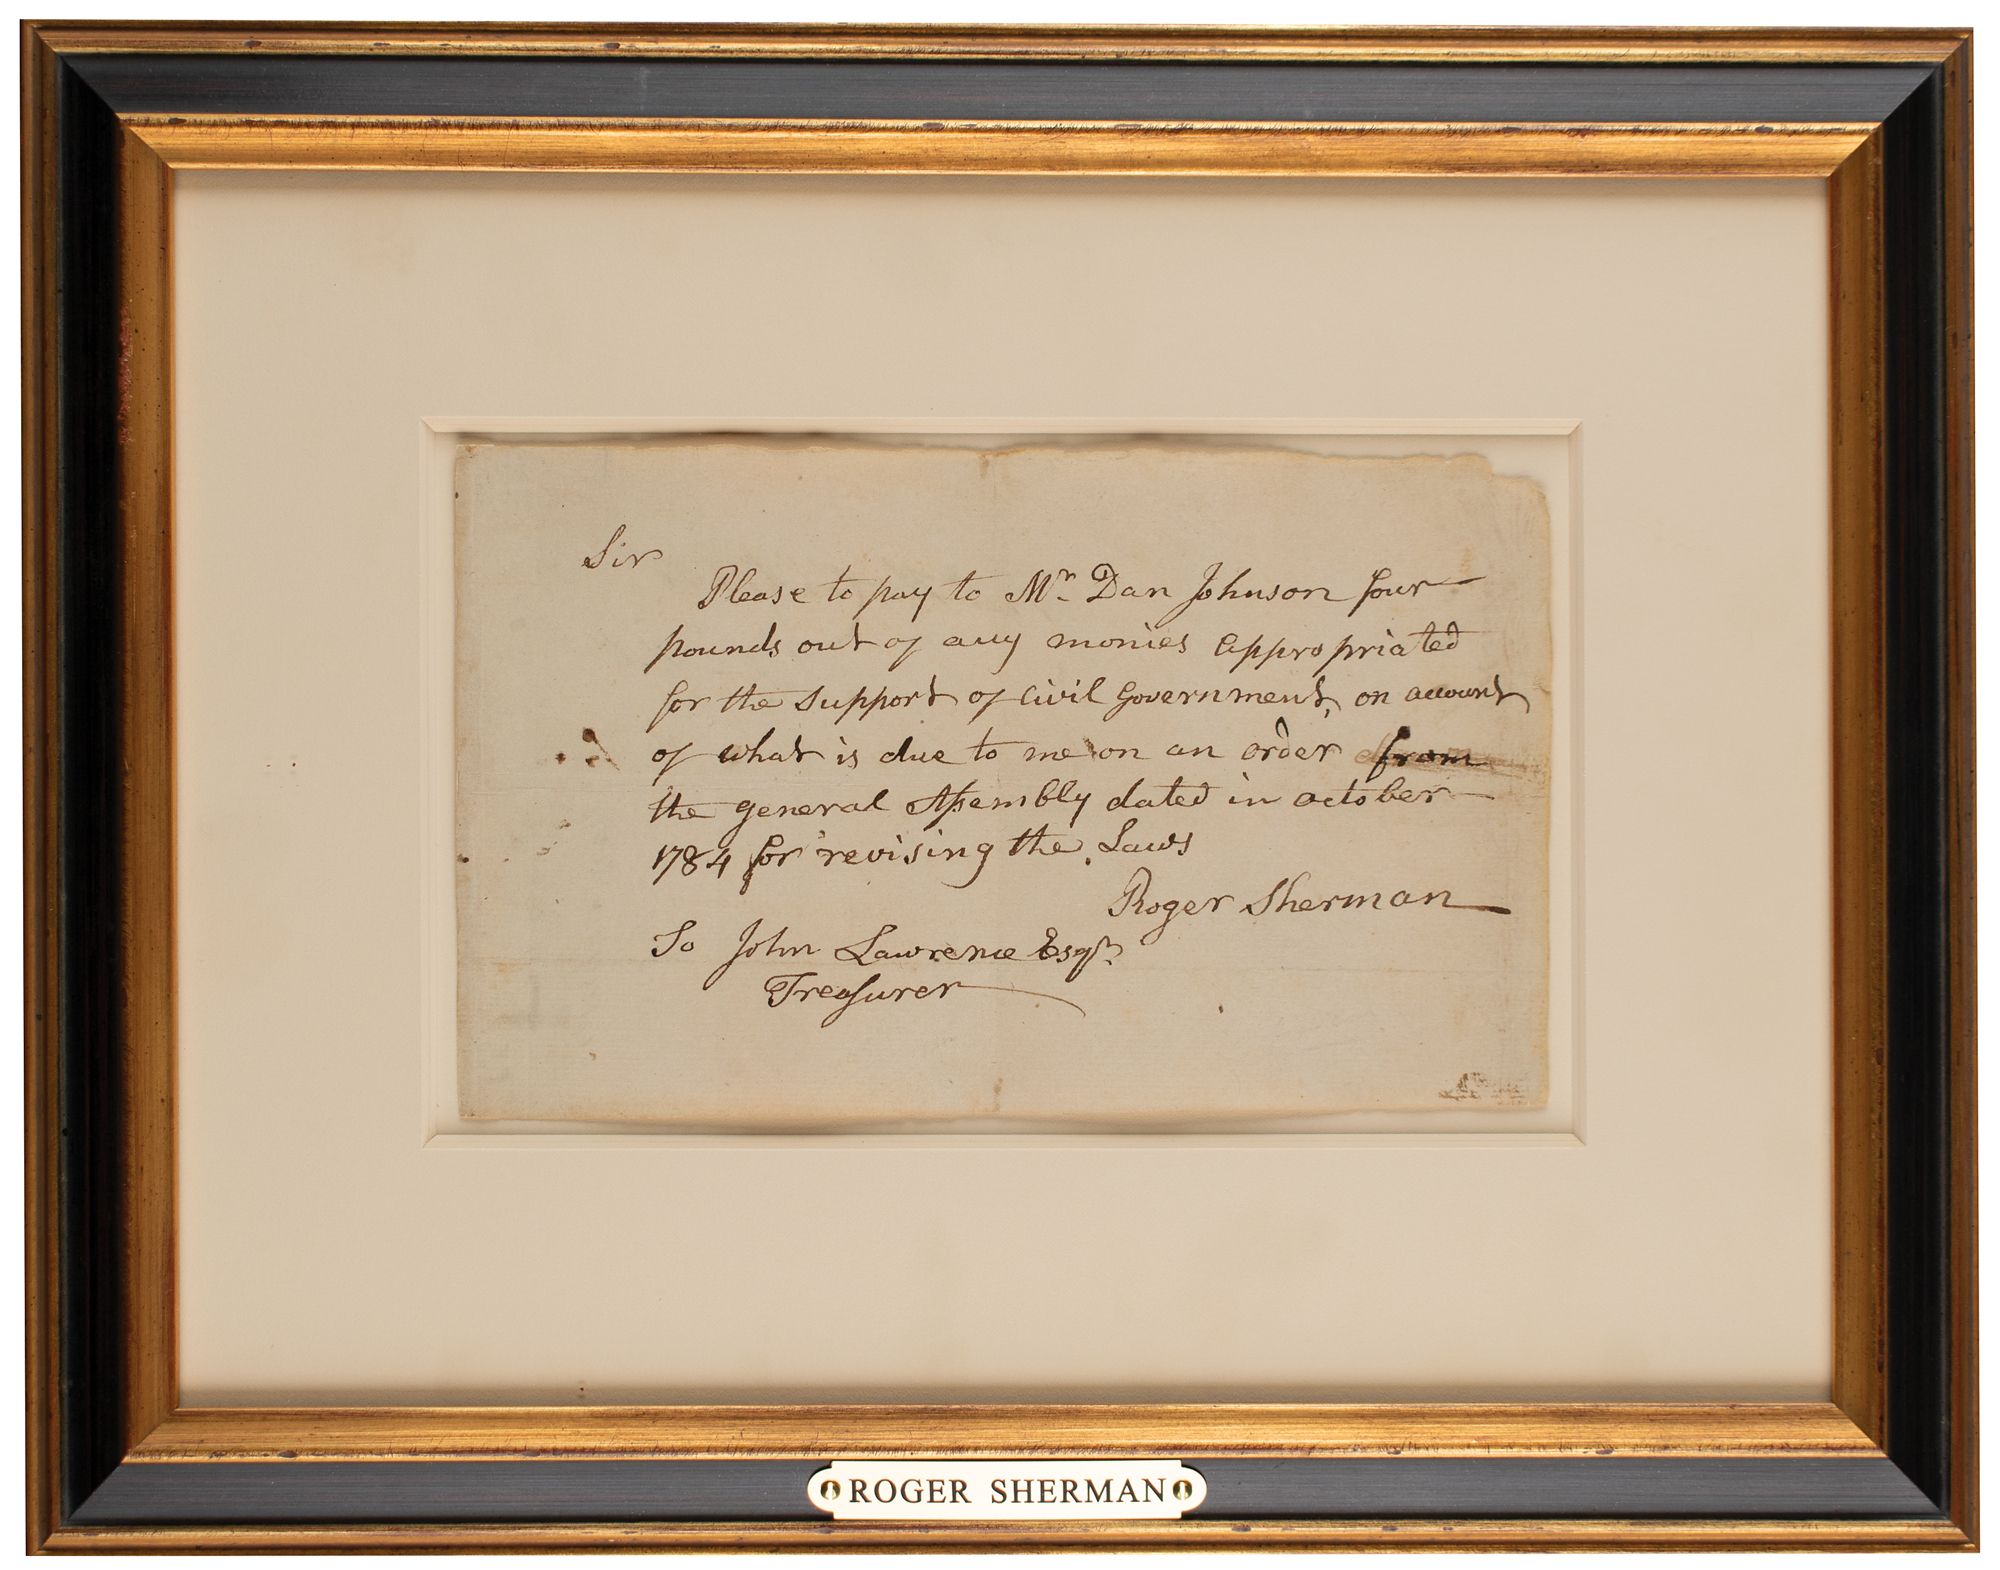 Sir
Please to pay to Mr. Dan Johnson four
pounds out of any monies appropriated
for the support of Civil Government, on account
of what is due to me on an order from
the general Assembly dated in october
1784 for revising the Laws
Roger Sherman
To John Lawrence Esqr.
Treasurer
ROGER SHERMAN